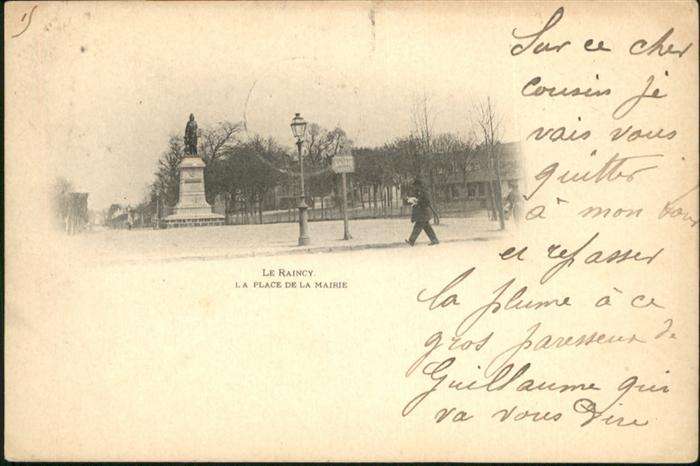 15
Sur ce cher
cousin je
vais vous
quitter
à mon tour
et repasser
la plume à ce
gros paresseux de
Guillaume qui
va vous dire
LE RAINCY.
LA PLACE DE LA MAIRIE